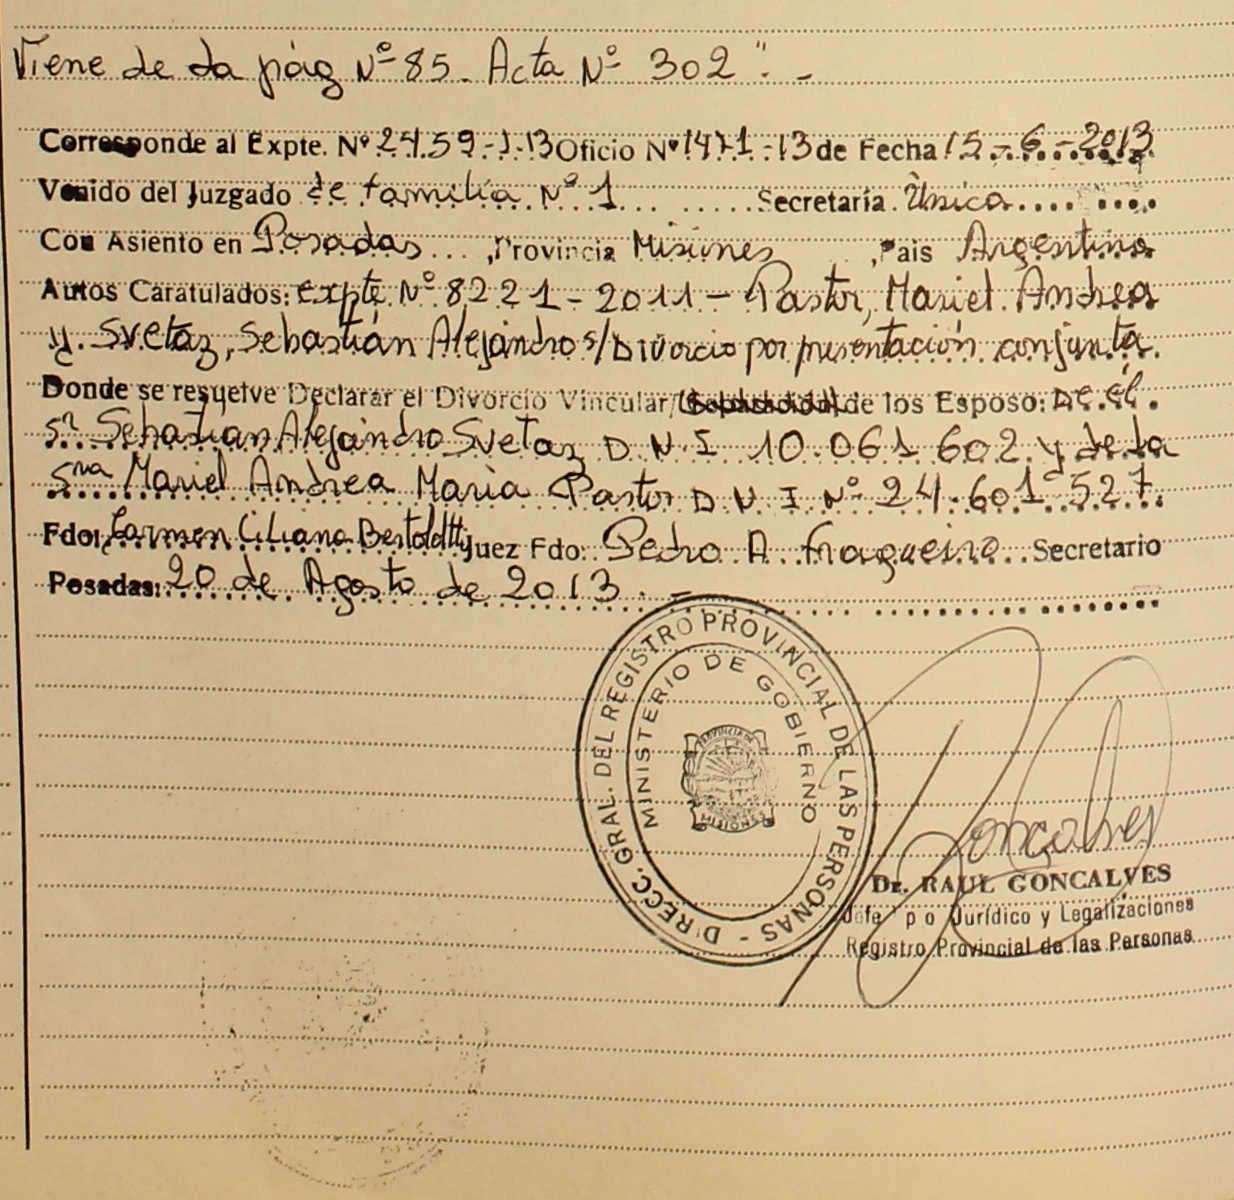 Viene de la pág Nº 85. Acta Nº 302". -
Corresponde al Expte. Nº 2459-J-13 Oficio Nº 1471-13 de Fecha 15-6-2013
Venido del Juzgado de familia Nº 1 Secretaría Única
Con Asiento en Posadas, Provincia Misiones, País Argentina
Autos Caratulados: expte Nº 8221-2011- Pastor, Mariel Andrea
y Svetaz, Sebastián Alejandro s/Divorcio por presentación conjunta.
Donde se resuelve Declarar el Divorcio Vincular/ de los Esposo: De él
Sr Sebastian Alejandro Svetaz D.N.I 10.061.602 y de la
Sra Mariel Andrea Maria Pastor D N I Nº 24.601.527.
Fdo: Carmen Liliana Bertoldtti Juez Fdo: Pedro A. Fragueiro Secretario
Posadas: 20 de Agosto de 2013. -
DIRECC. GRAL. DEL REGISTRO PROVINCIAL DE LAS PERSONAS -
MINISTERIO DE GOBIERNO
PROVINCIA DE
MISIONES
Goncalves
Dr. RAUL GONCALVES
Jefe Jurídico y Legalizaciones
Registro Provincial de las Personas